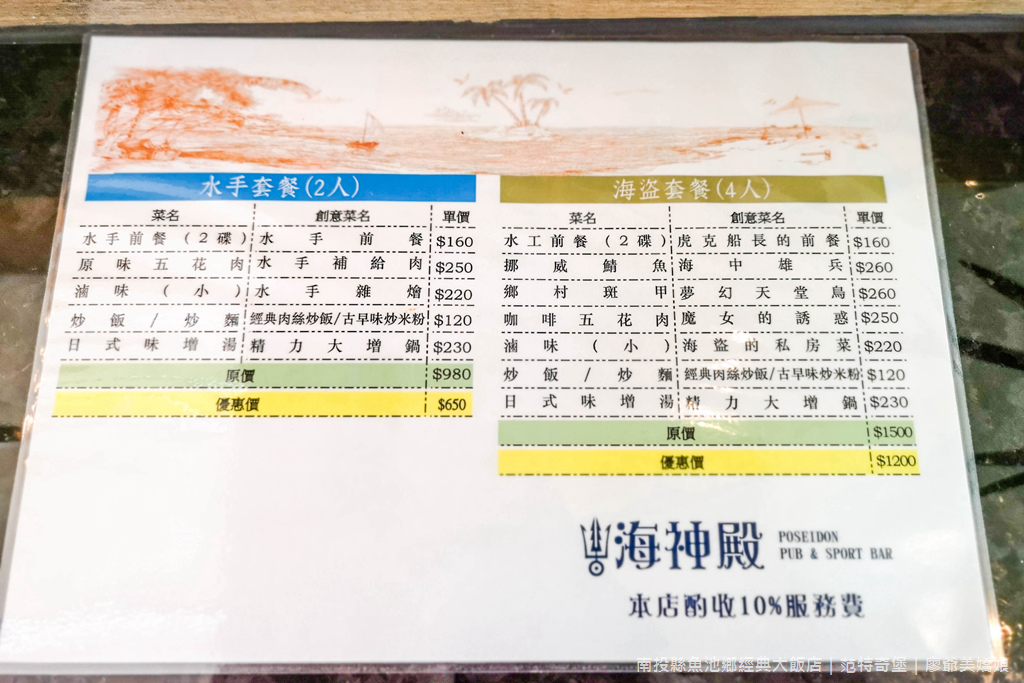 水手套餐(2人)
菜名 創意菜名 單價
水手前餐(2碟) 水手前餐 $160
原味五花肉 水手補給肉 $250
滷味(小) 水手雜燴 $220
炒飯/炒麵 經典肉絲炒飯/古早味炒米粉 $120
日式味增湯 精力大增鍋 $230
原價 $980
優惠價 $650
海盜套餐(4人)
菜名 創意菜名 單價
水工前餐(2碟) 虎克船長的前餐 $160
挪威鯖魚 海中雄兵 $260
鄉村斑甲 夢幻天堂鳥 $260
咖啡五花肉 魔女的誘惑 $250
滷味(小) 海盜的私房菜 $220
炒飯/炒麵 經典肉絲炒飯/古早味炒米粉 $120
日式味增湯 精力大增鍋 $230
原價 $1500
優惠價 $1200
海神殿 POSEIDON
PUB & SPORT BAR
本店酌收10%服務費
南投縣魚池鄉經典大飯店 | 范特奇堡 | 廖爺美嬌娘